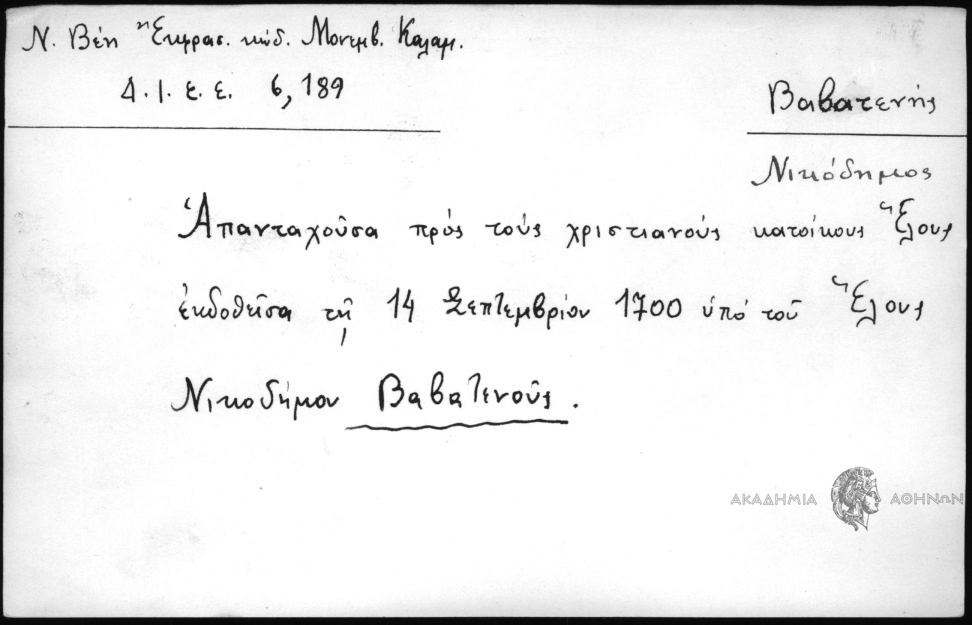 Ν. Βέη Ἔκφρασ. κώδ. Μονεμβ. Καλαμ.
Δ. Ι. Ε. Ε. 6, 189
Βαβατενής
Νικόδημος
Ἀπανταχοῦσα πρός τούς χριστιανούς κατοίκους Ἕλους
ἐκδοθεῖσα τῇ 14 Σεπτεμβρίου 1700 ὑπό τοῦ Ἕλους
Νικοδήμου Βαβατενοῦς.
ΑΚΑΔΗΜΙΑ ΑΘΗΝΩΝ